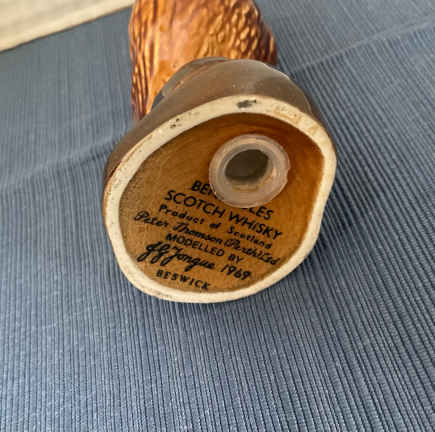 SCOTCH WHISKY
Product of Scotland
Peter Thomson (Perth) Ltd
MODELLED BY
1969
BESWICK